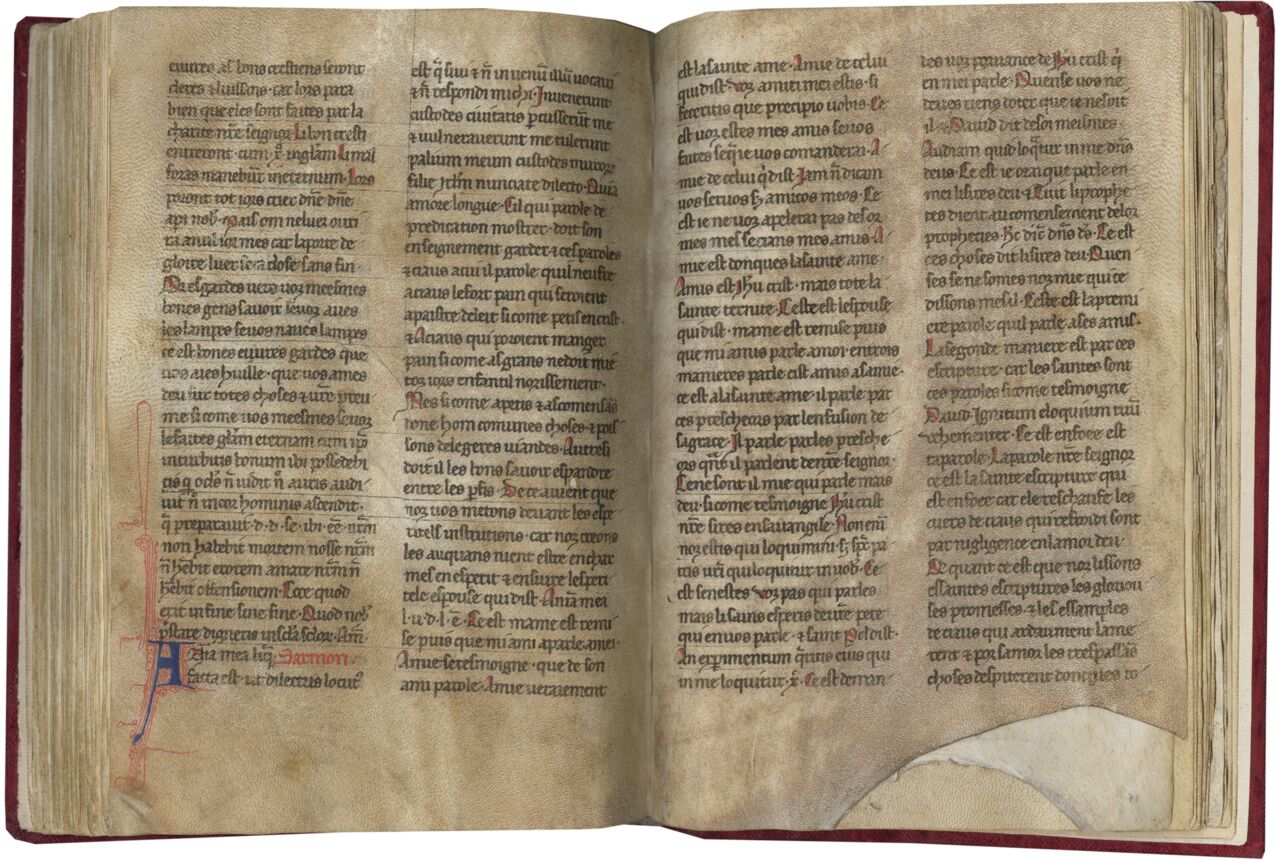 euures as bons crestiens seront
cleres & luissons · car lors para
bien que eles sont faites par la
charite nr̃e seignor · Li bon cresti
enterront · cum x̃ · in glam̃ Li mal
foras manebũt in eternum · Lors
tot iors
api nob̃ · Mais om ne lur ouri
ra
gloire luer iert close sans fin ·
Or esgardes uers uos meesmes
bones gens sauoir se uos aues
les lampes se uos naues lampes
ce est bones euures gardes que
uos aies huille · que uos ames
deu sur totes choses & ur̃e preu
me si come uos meesmes se uos
le faites glam̃ eternam cum xp̃o
bonum ibi possidebi
tis q̃ ocls̃ ñ uidit ñ auris audi
uit ñ in cor hominis ascendit ·
q̃ preparauit · d · d · se · ibi · ẽẽ ·
non habebit mortem nosse
ñ hẽbit erorem amare ñ
hẽbit offensionem · Ecce quod
erit in fine sine fine · Quod nob̃
p̃stare dignetis in scl̃a sclor̃ · Am̃
Anima mea liq̃ · Sarmon ·
facta est · ut dilectus locut⁹
est q̃siui & ñ inueni illũ uocaui
& ñ respondit michi · Inuenerunt
custodes ciuitatis percusserũt me
& uulnerauerunt me tulerunt
palium meum custodes muror̃
filie irl̃m nunciate dilecto · Quia
amore longue · Cil qui parole de
predication mostrer · doit son
enseignement garder & ces paroles
& ciaus a cui il parole quil ne ofre
a ciaus le fort pain qui seroient
apaistre de leit si come petis enfãs ·
& A ciaus qui poroient manger
pain si come as grans ne doit mie
toz iors enfantil norissement ·
Mes si come apetis & a scomensãs
done hom comunes choses & poil
sons de legeres uiandes · Autresi
doit il les bons sauoir espandre
entre les p̃fis · De ce auient que
nos uos metrons deuant les espe
ritels institutions · car nos creons
les auquans uuent estre enchar
mes en esperit & ensuire lesperi
tele espouse qui dist · Aniã mea
l · u · d · l · ẽ · Ce est mame est remi
se puis que mi ami aparle a mei ·
Amie se tesmoigne · que de son
ami parole · Amie ueraiement
est la sainte ame · Amie de celui
qui dist · Vos amici mei estis · si
feceritis que precipio uobis · Ce
est uos estes mes amis se uos
faites se que ie uos comanderai · A
mie de celui q̃ dist Iam ñ dicam
uos seruos s̃ amicos meos · Ce
est ie ne uos apelerai pas desor
mes mes serians mes amis · A
mie est donques la sainte ame ·
Amis est Ihũ crist · mais tote la
sainte ternite · Ceste est lespouse
qui dist · mame est remise puis
que mi amis parle a moi · en trois
manieres parle cist amis a samie ·
ce est a la sainte ame · il parle par
ces prescheors par lenfusion de
sa grace · Il parle par les presche ·
ors qñt il parlent de nr̃e seignor ·
Ce ne sont il mie qui parle mais
deu · si come tesmoigne Ihũ crist
nr̃e sires en sauangile · Non enim̃
uos estis qui loquimini · s̃ · sp̃c pa
tris ur̃i qui loquitur in uob̃ · Ce
est se nestes uos pas qui parles
mais li sains esperis de ur̃e pere
qui en uos parle · & saint Pol dist ·
An experimentum q̃ritis eius qui
in me loquitur · x̃ · Ce est deman ·
des uos prouance de Ihũ crist q̃
en mei parle · Quense uos ne
deues riens doter que ie ne soit
il · & Dauid dit de soi meismes ·
Audiam quid loq̃tur in me dñs
deus · Ce est ie orai que parle en
mei li sires deu · & Tuit li prophe
tes dient au comensement de lor
prophecies · h̃c diẽ dñs ds̃ · Ce est
ces choses dit li sires deu · Quen
ses se ne somes nos mie qui ce
dissons mes il · Ceste est la premi
ere parole quil parle a ses amis ·
La segonde maniere est par ces
escriptures · car les saintes sont
ces paroles si come tesmoigne
Dauid · Ignitum eloquium tuũ
uehementer · Ce est enfoee est
ta parole · La parole nr̃e seignor
ce est la sainte escripture qui
est enfoee car ele reschaufe les
cuers de ciaus qui refroidi sont
par nigligence en lamor deu ·
De quant ce est que nos lissons
escriptures les gloriou
ses promesses · & les essamples
de ciaus qui ardaument lame
rent & por samor les trespassãs
choses despiterent donques co